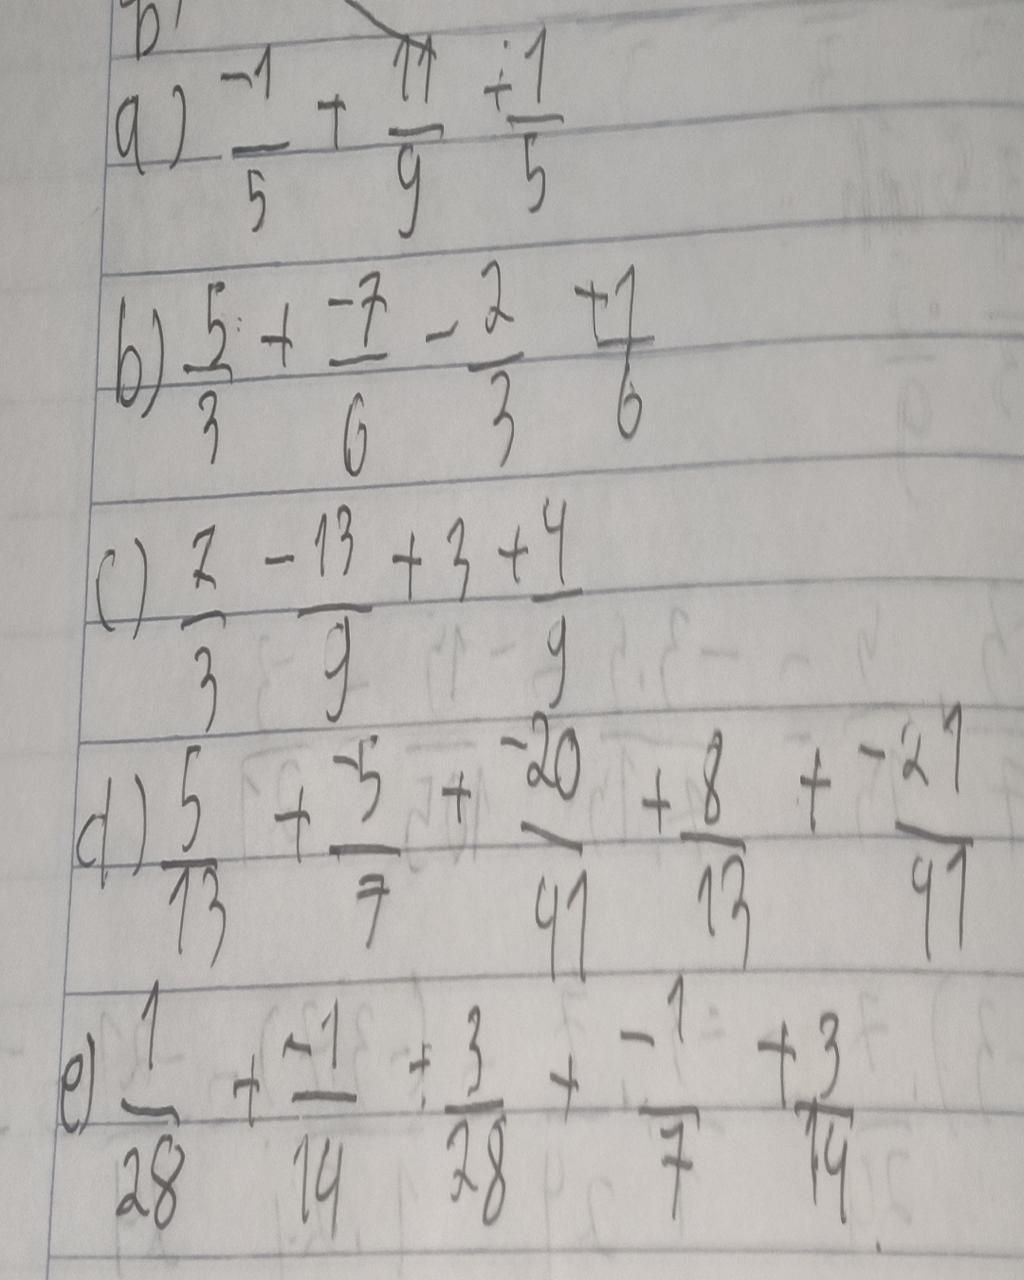 a) -1/5 + 11/9 + 1/5
b) 5/3 + -7/6 - 2/3 + 1/6
c) 7/3 - 13/9 + 3 + 4/9
d) 5/13 + -5/7 + -20/41 + 8/13 + -21/41
e) 1/28 + -1/14 + 3/28 + -1/7 + 3/14